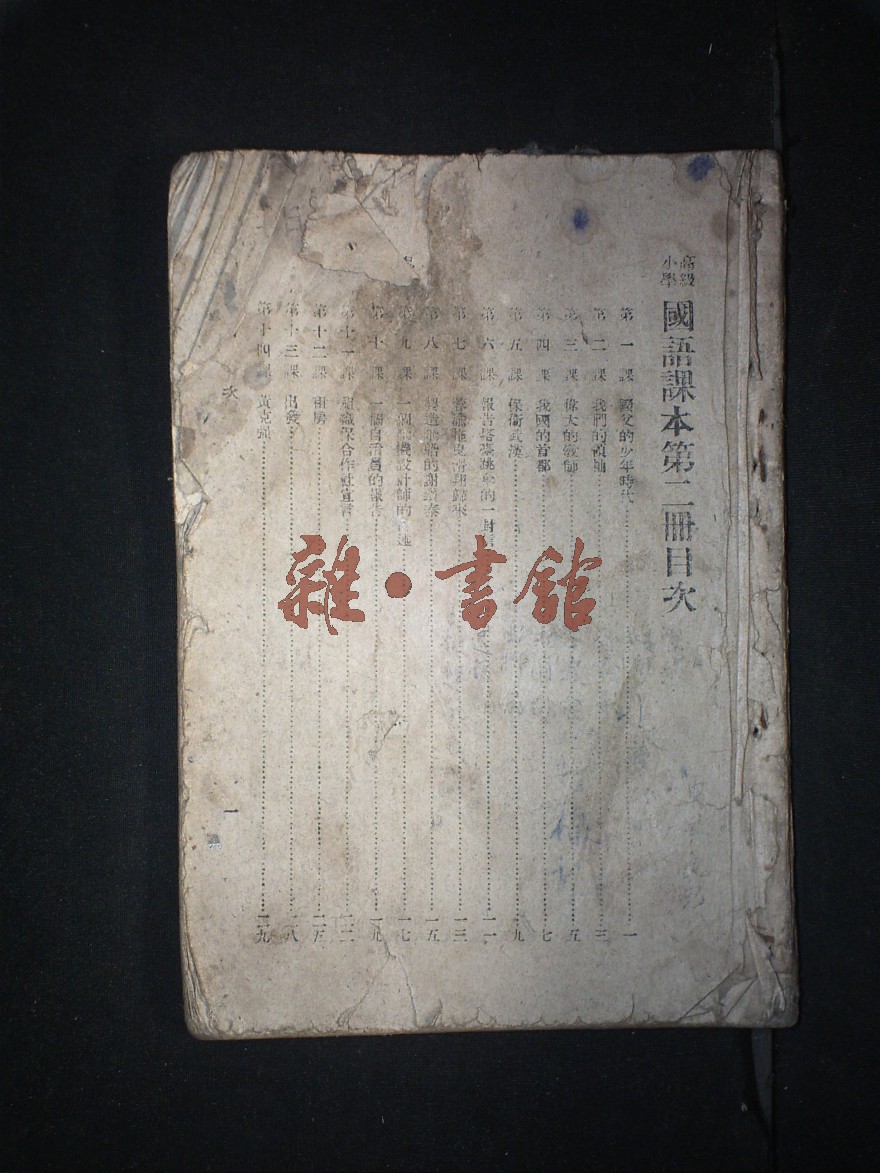 高級
小學
國語課本第二冊目次
第一課 國父的少年時代 一
第二課 我們的領袖 三
第三課 偉大的教師 五
第四課 我國的首都 七
第五課 保衞武漢 九
第六課 報告塔臺跳傘的一封信 一一
第七課 一三
第八課 製造飛船的謝纘泰 一五
第九課 一個機設計師的自述 一七
第十課 一個自治員的報告 一九
第十一課 組織保合作社宣言 二二
第十二課 租房 二五
第十三課 出發 二八
第十四課 黃克强 二九
次
一
雜·書館